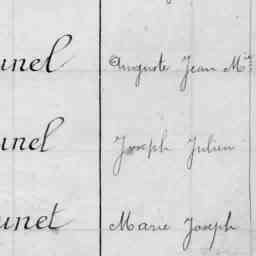 unel Auguste Jean Mie
unel Joseph Julien
unet Marie Joseph